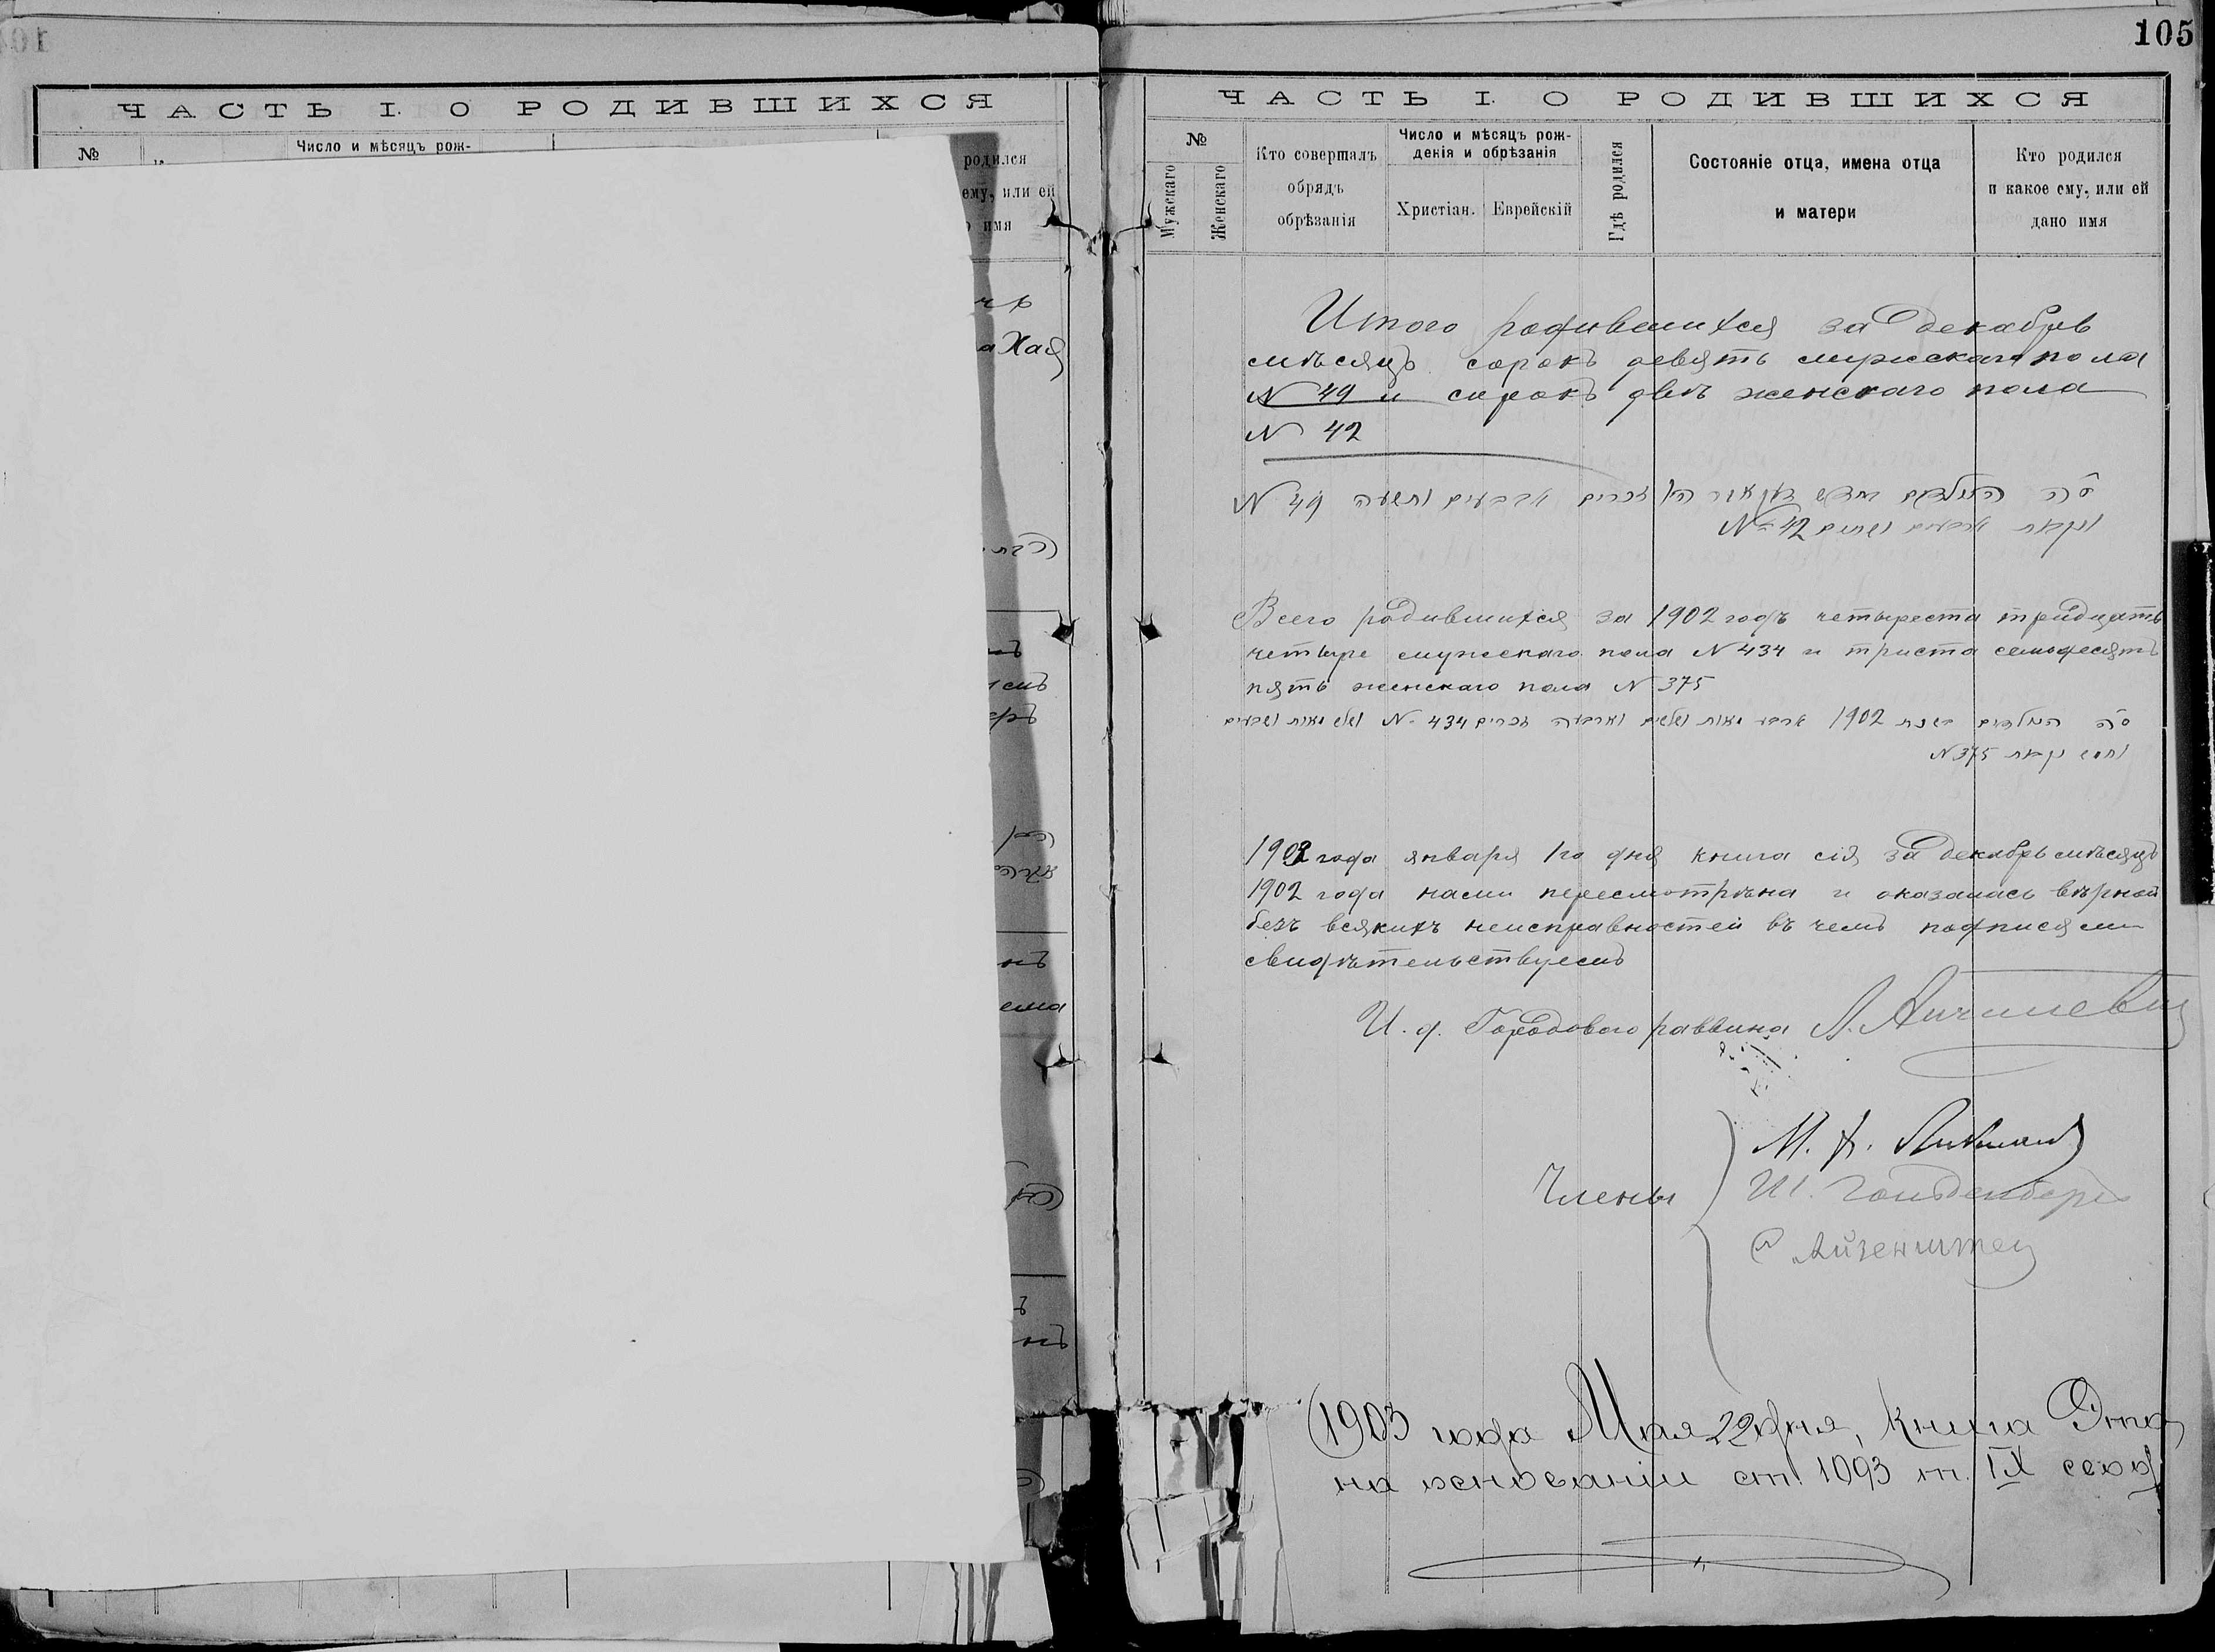 ЧАСТЬ I. О РОДИВШИХСЯ
№
Число и мѣсяцъ рож-
родился
ему, или ей
имя
а Хая
105
ЧАСТЬ I. О РОДИВШИХСЯ
№
Мужескаго
Женскаго
Кто совершалъ
обрядъ
обрѣзанія
Число и мѣсяцъ рож-
денія и обрѣзанія
Христіан.
Еврейскій
Гдѣ родился
Состояніе отца, имена отца
и матери
Кто родился
и какое ему, или ей
дано имя
Итого родившихся за декабрь
мѣсяцъ сорокъ девять мужескаго пола
N 49 и сорокъ двѣ женскаго пола
N 42
ס"ה הנולדים זכרים ארבעים ותשעה N 49
ונקבות ארבעים ושתים N 42
Всего родившихся за 1902 годъ четыреста тридцать
четыре мужескаго пола N 434 и триста семьдесятъ
пять женскаго пола N 375
ס"ה הנולדים בשנת 1902 ארבע מאות ושלשים וארבעה זכרים N 434 ושלש מאות ושבעים
וחמש נקבות N 375
1903 года января 1го дня книга сія за декабрь мѣсяцъ
1902 года нами пересмотрѣна и оказалась вѣрной
безъ всякихъ неисправностей въ чемъ подписями
свидѣтельствуемъ
И. д. Городового раввина Л.
Члены
М.
Ш. Гольденберг
С Айзенштен
1903 года Мая 22 дня, книга Эта
на основаніи ст. 1093 т. IX